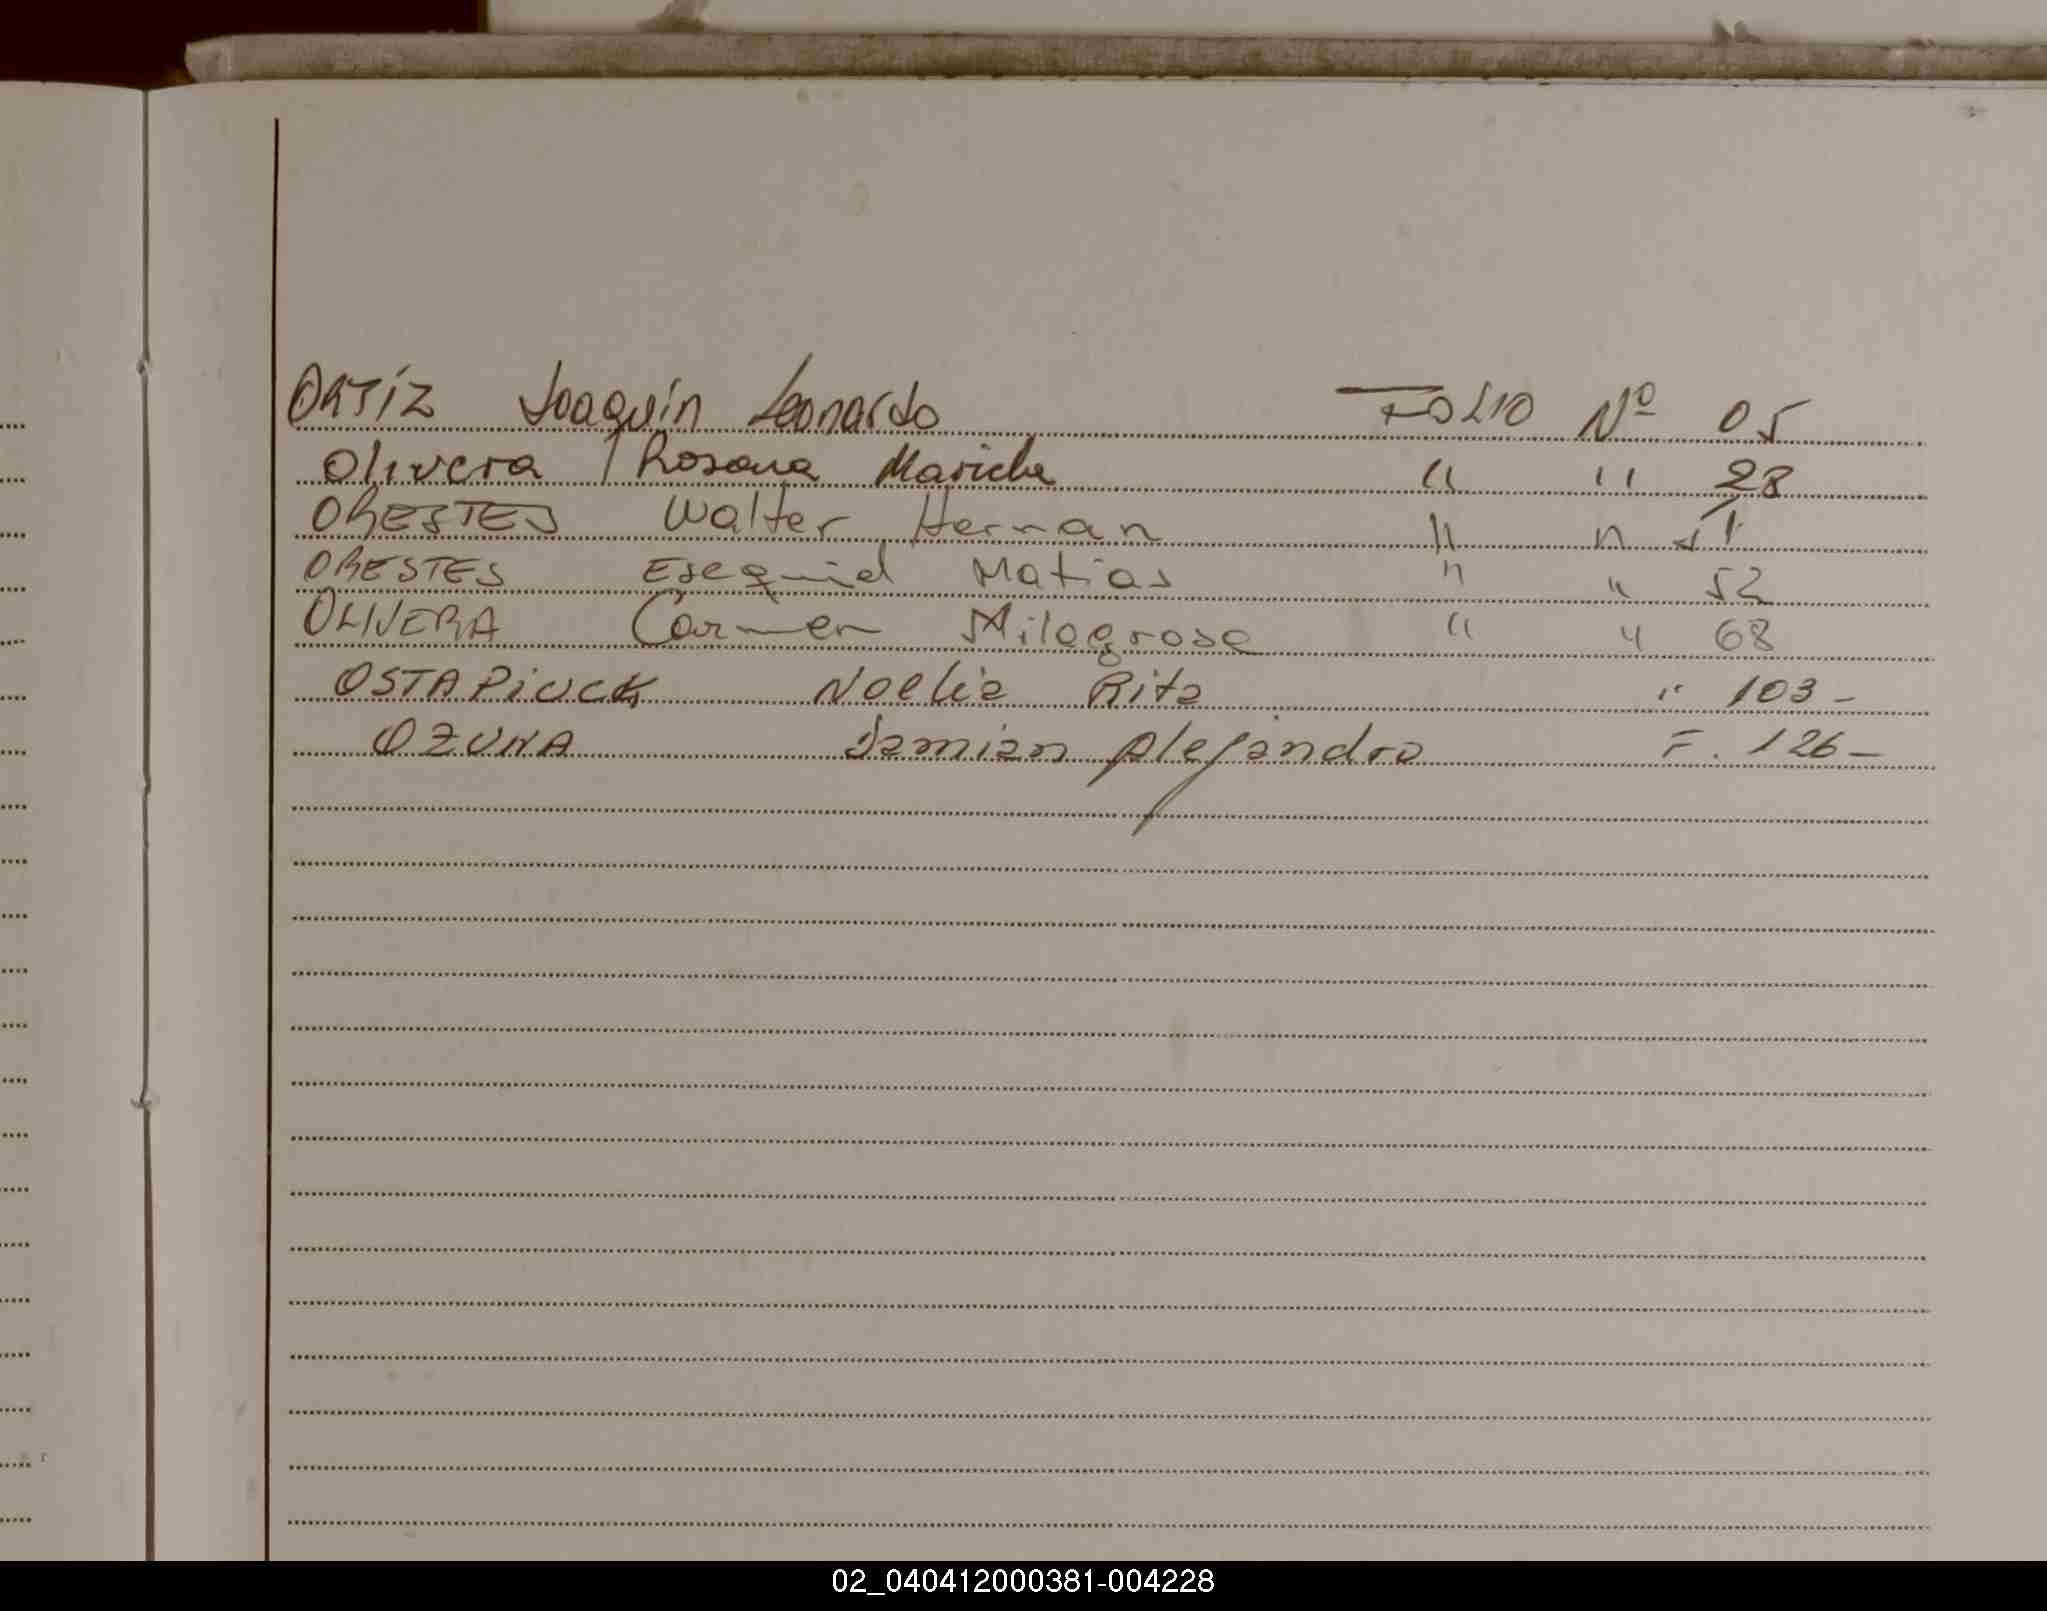 ORTÍZ Joaquín Leonardo FOLIO Nº 05
Olivera Rosana Maricha " " 28
ORESTES Walter Hernan " " 51
ORESTES Esequiel Matias " " 52
OLIVERA Carmen Milagrosa " " 68
OSTAPIUCK Noelia Rita " 103-
OZUNA Damian Alejandro F. 126-
02_040412000381-004228